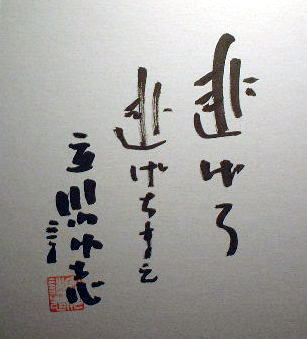 逃げろ
逃げちまえ
立川談志